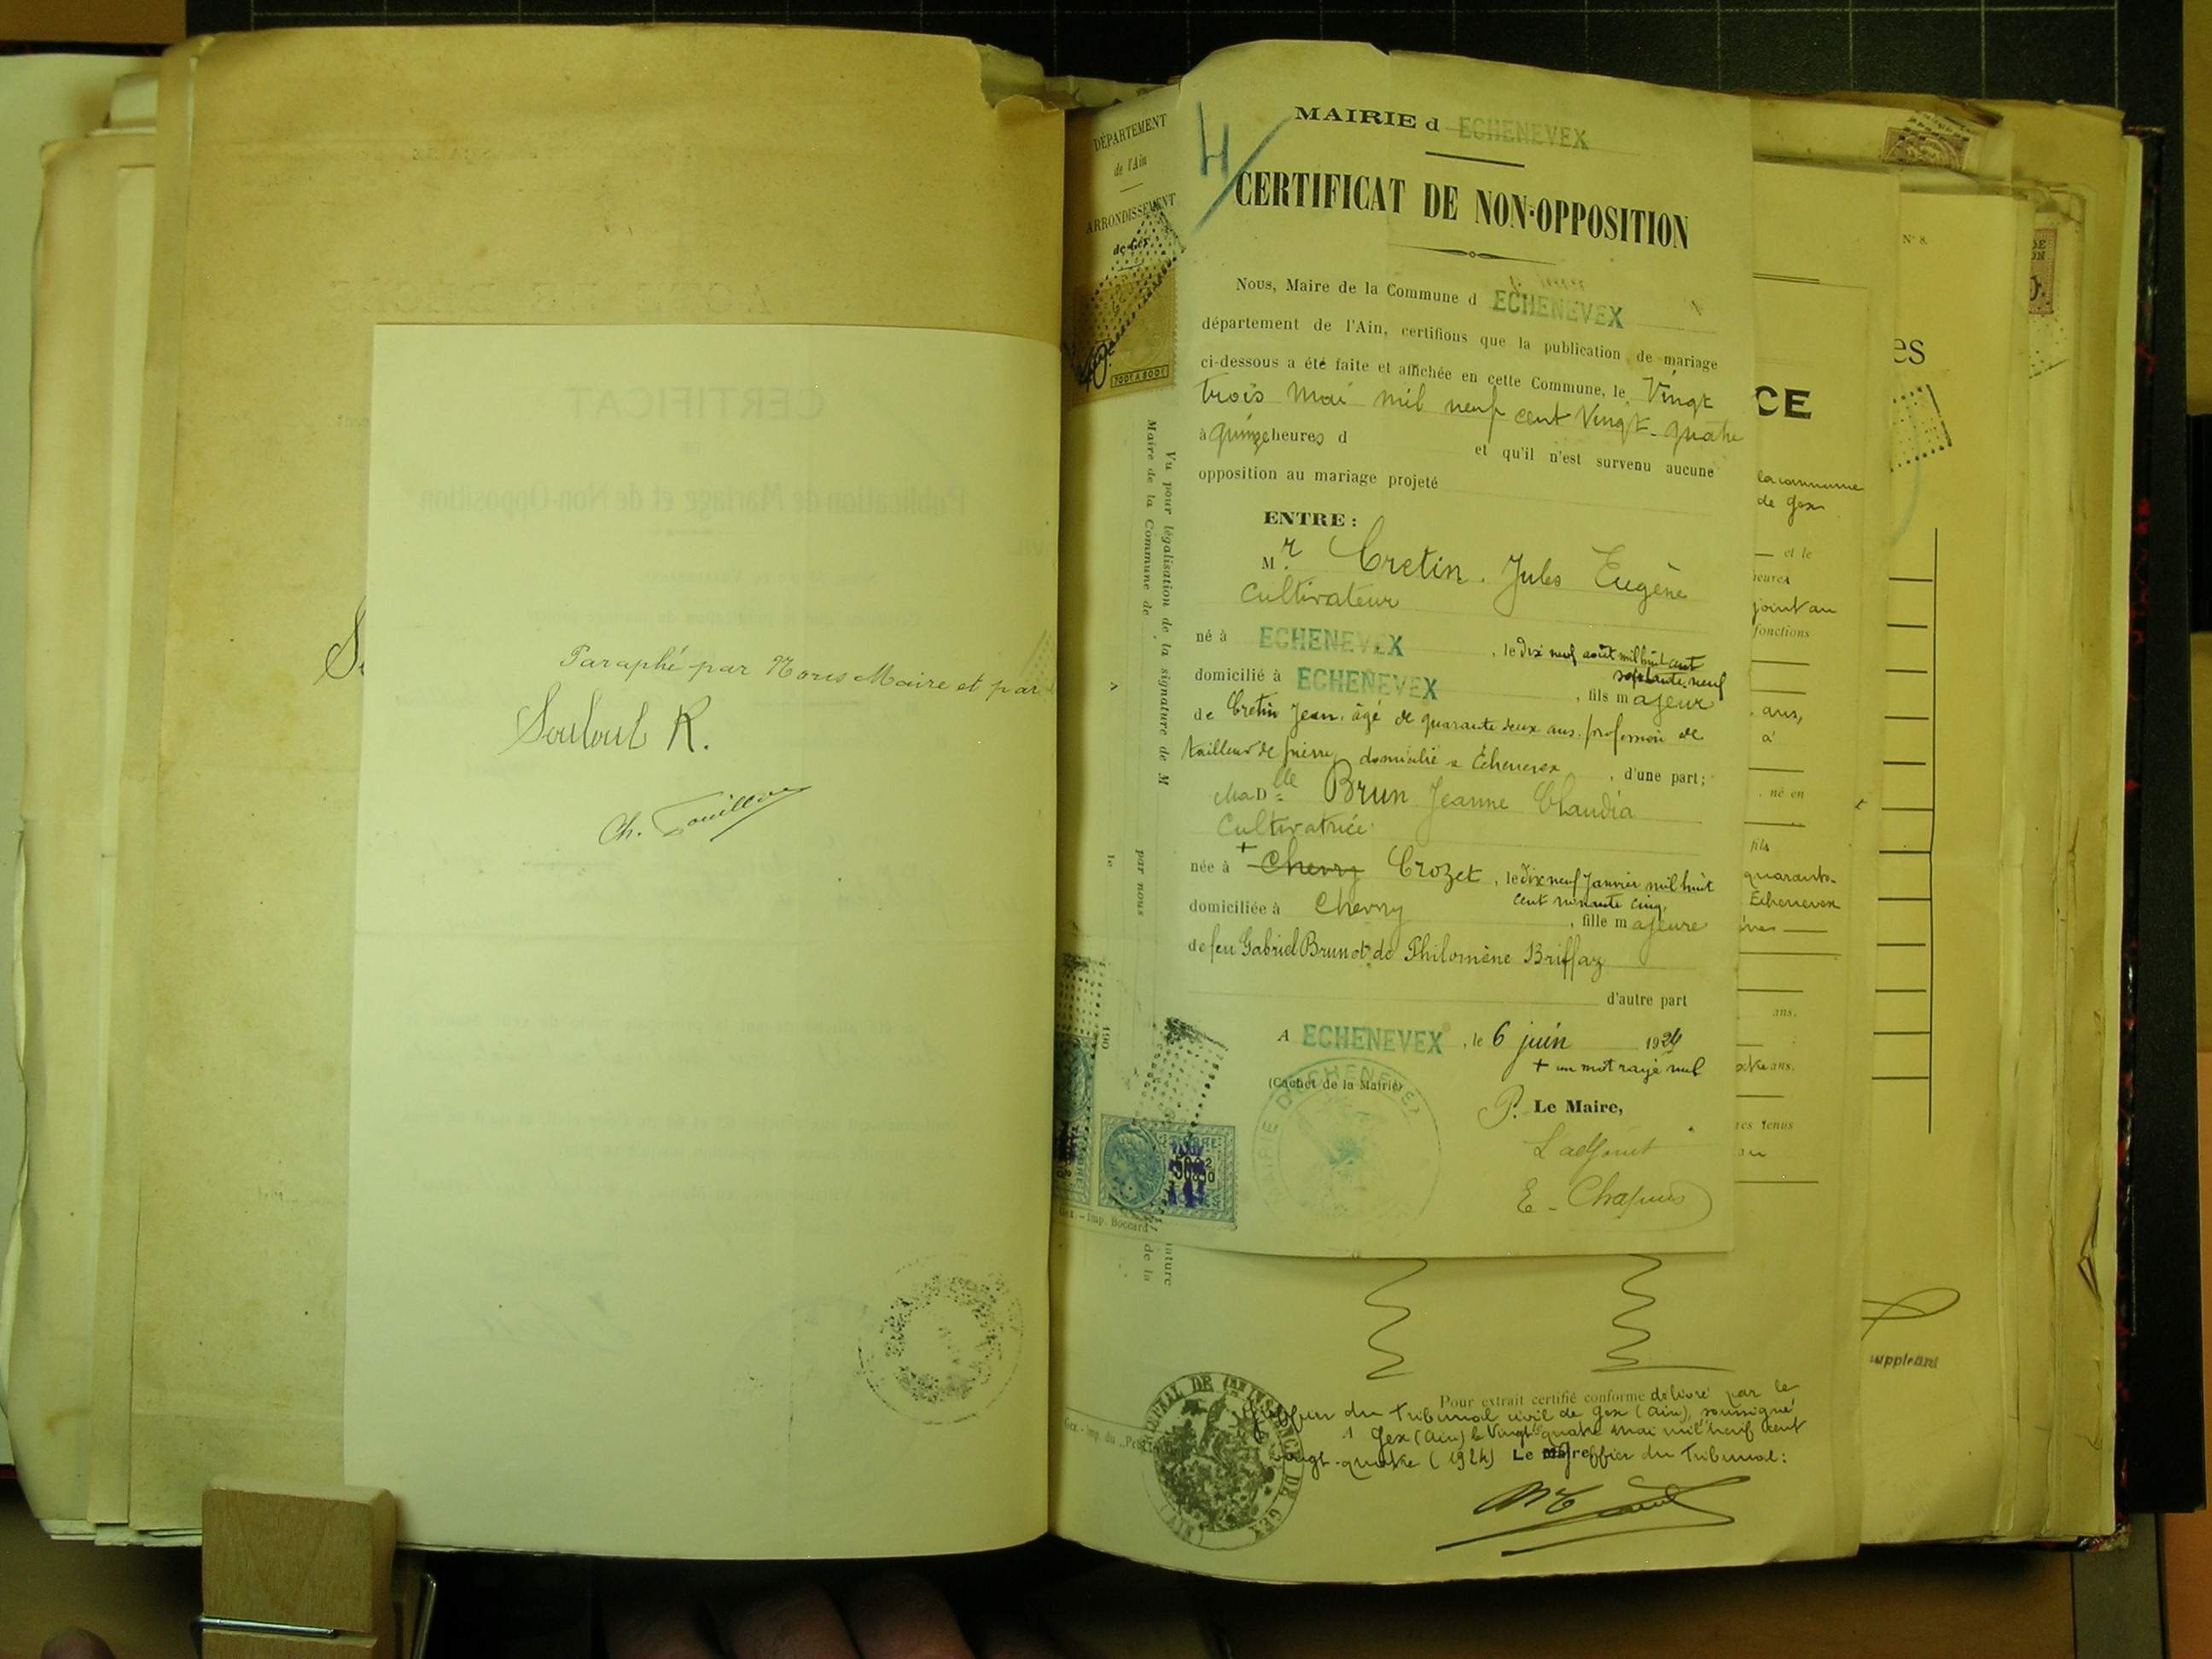 Paraphé par Nous Maire et par
R.
Ch.
DÉPARTEMENT
de l'Ain
ARRONDISSEMENT
de Gex
4
MAIRIE d ECHENEVEX
CERTIFICAT DE NON-OPPOSITION
Nous, Maire de la Commune d ECHENEVEX
département de l'Ain, certifions que la publication de mariage
ci-dessous a été faite et affichée en cette Commune, le Vingt
trois Mai mil neuf cent Vingt-quatre
à quinze heures d et qu'il n'est survenu aucune
opposition au mariage projeté
ENTRE :
Mr Cretin Jules Eugène
Cultivateur
né à ECHENEVEX , le Dix neuf août mil huit cent
soixante neuf
domicilié à ECHENEVEX , fils majeur
de Cretin Jean, âgé de quarante deux ans, profession de
tailleur de pierre domicilié à Echenevex , d'une part;
Et Ma Dlle Brun Jeanne Claudia
Cultivatrice
née à + Chevry Crozet , le dix neuf Janvier mil huit
cent nonante cinq
domiciliée à Chevry , fille majeure
de feu Gabriel Brun et de Philomène Briffaz
d'autre part
A ECHENEVEX , le 6 juin 1924
+ un mot rayé nul
(Cachet de la Mairie)
MAIRIE D'ECHENEVEX
P. Le Maire,
L'adjoint
E. Chapuis
Vu pour légalisation de la signature de M
Maire de la Commune de
par nous
A
le
190
Gex - Imp. Boccard
Pour extrait certifié conforme délivré par le
Greffier du Tribunal civil de Gex (Ain), soussigné
Gex (Ain) le Vingt quatre Mai mil neuf cent
vingt-quatre (1924) Le Greffier du Tribunal :
TRIBUNAL DE 1ÈRE INSTANCE DE GEX (AIN)
N° 8.
es
CE
la commune
de Gex
et le
heures
joint au
fonctions
ans,
à
né en
fils
quarante-
Echenevex
ans.
ans.
res tenus
suppléant